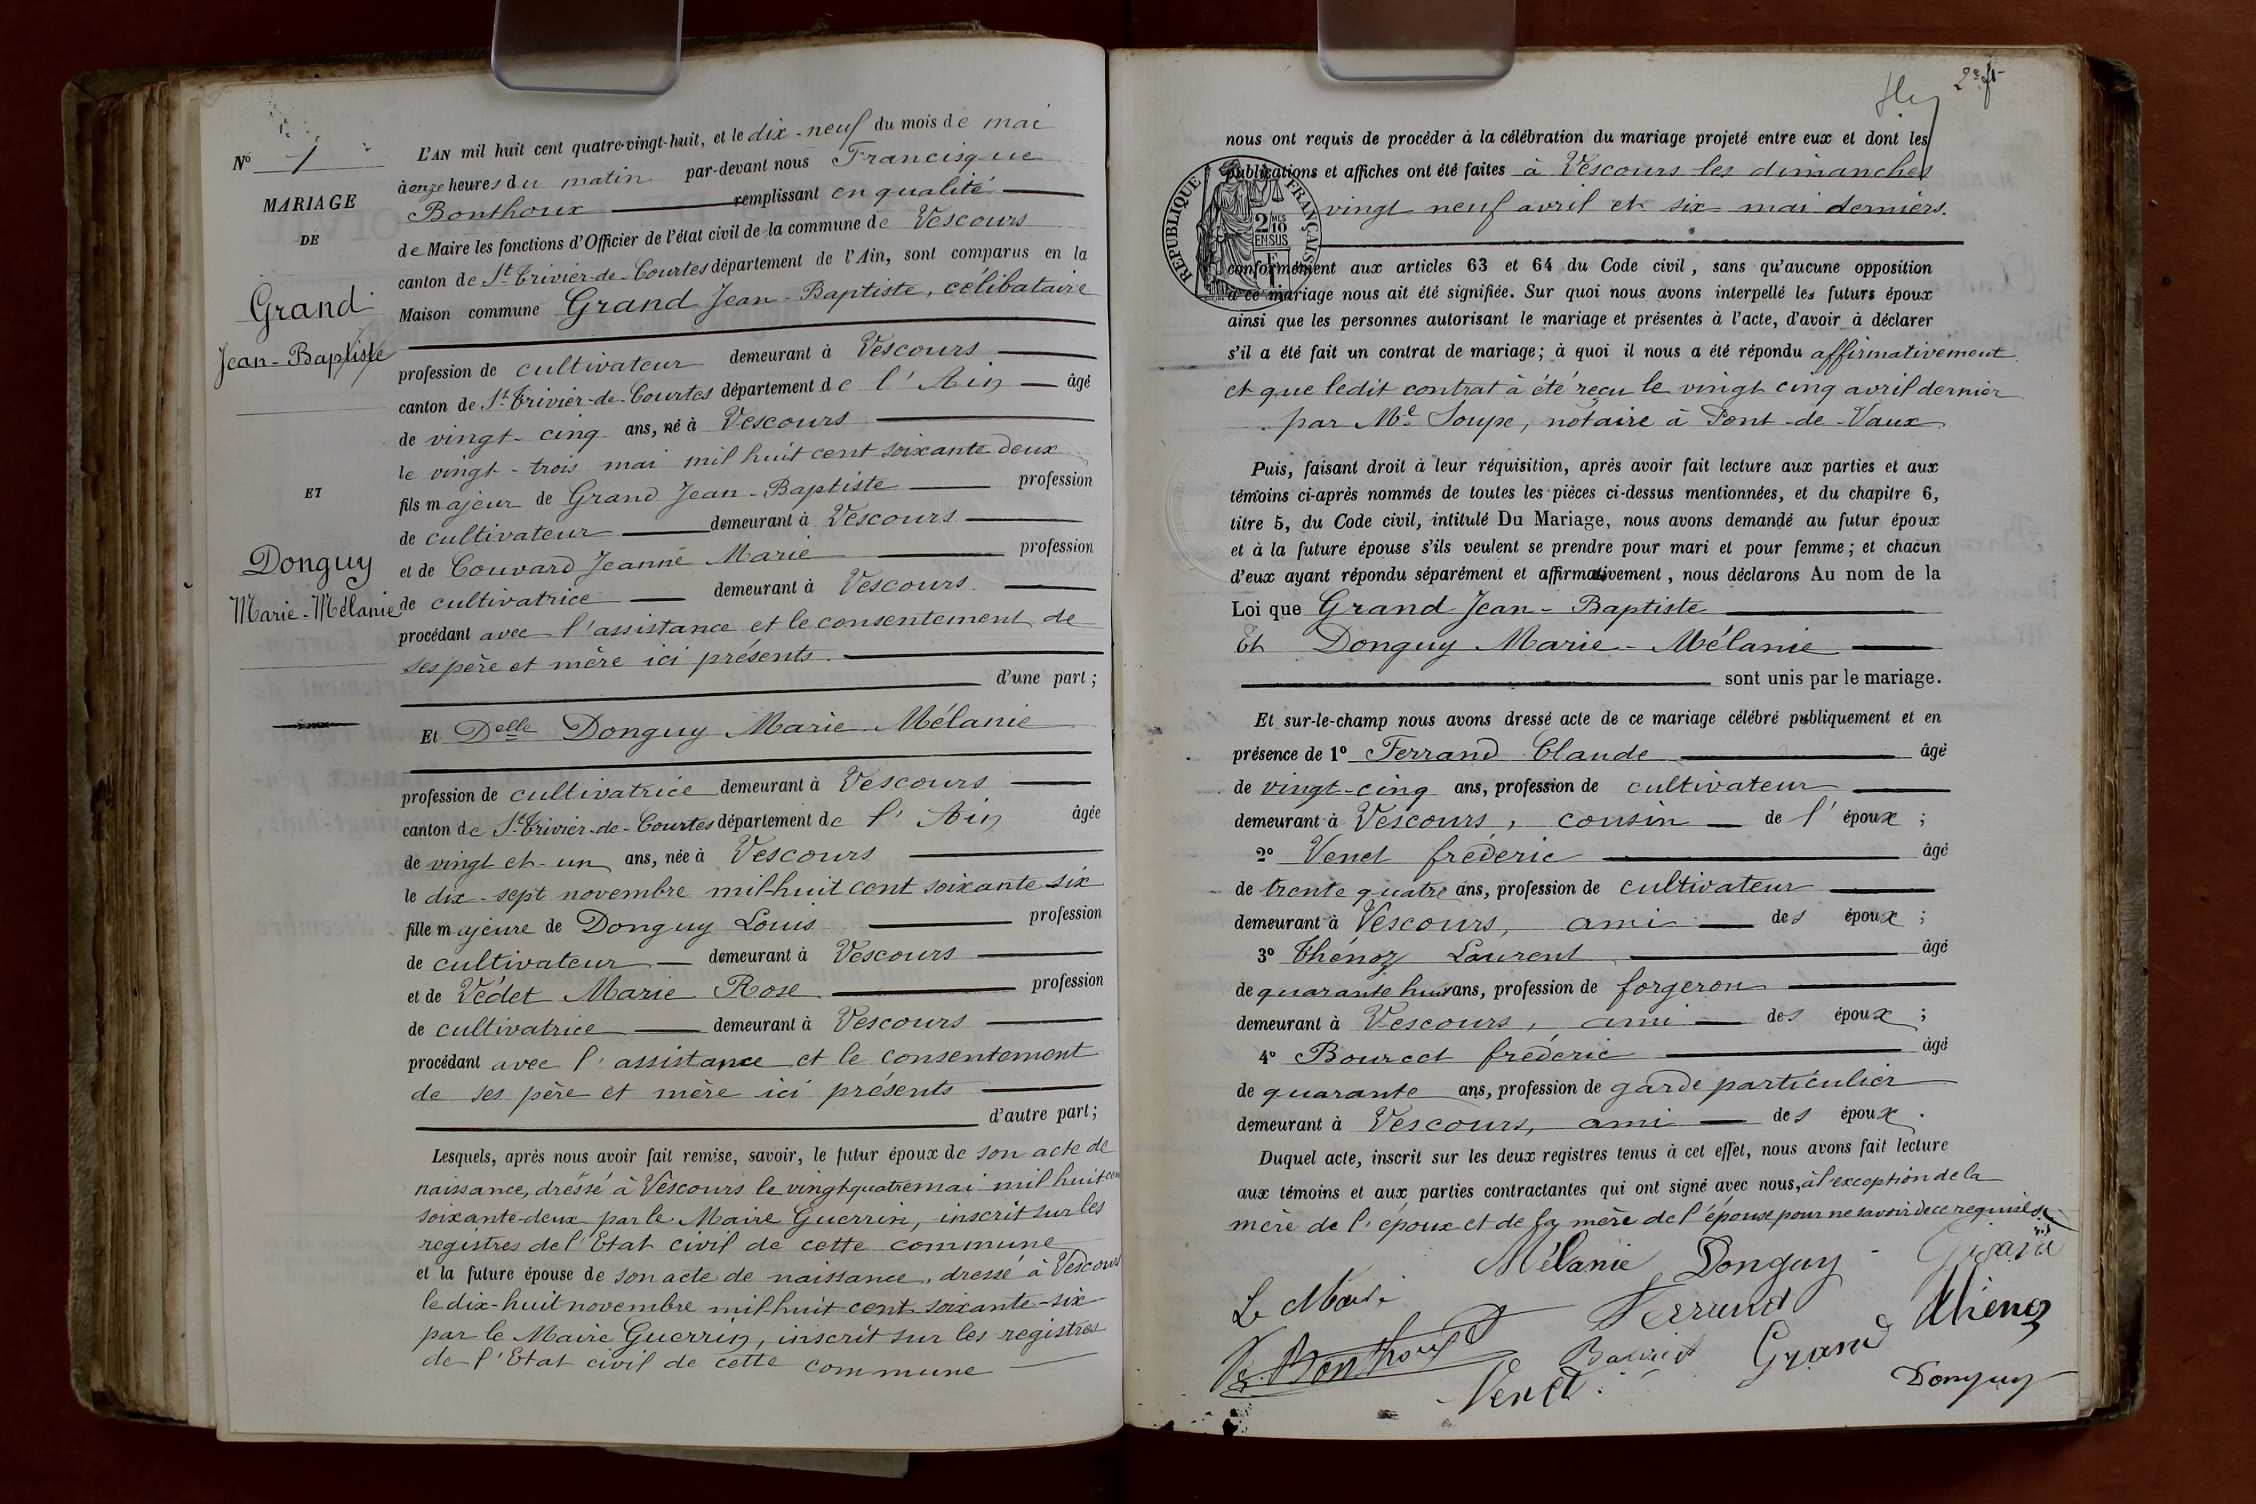 Nº 1
MARIAGE
DE
Grand
Jean-Baptiste
ET
Donguy
Marie-Mélanie
L'AN mil huit cent quatre-vingt-huit, et le dix-neuf du mois de mai
à onze heures du matin par-devant nous Francisque
Bonthoux remplissant en qualité
de Maire les fonctions d'Officier de l'état civil de la commune de Vescours
canton de St Trivier-de-Courtes département de l'Ain, sont comparus en la
Maison commune Grand Jean-Baptiste, célibataire
profession de cultivateur demeurant à Vescours
canton de St Trivier-de-Courtes département de l'Ain âgé
de vingt-cinq ans, né à Vescours
le vingt-trois mai mil huit cent soixante deux
fils majeur de Grand Jean-Baptiste profession
de cultivateur demeurant à Vescours
et de Couvard Jeanne Marie profession
de cultivatrice demeurant à Vescours
procédant avec l'assistance et le consentement de
ses père et mère ici présents.
d'une part;
Et Delle Donguy Marie-Mélanie
profession de cultivatrice demeurant à Vescours
canton de St Trivier-de-Courtes département de l'Ain âgée
de vingt et un ans, née à Vescours
le dix-sept novembre mil-huit cent soixante six
fille majeure de Donguy Louis profession
de cultivateur demeurant à Vescours
et de Védet Marie Rose profession
de cultivatrice demeurant à Vescours
procédant avec l'assistance et le consentement
de ses père et mère ici présents
d'autre part;
Lesquels, après nous avoir fait remise, savoir, le futur époux de son acte de
naissance, dréssé à Vescours le vingt quatre mai mil huit cent
soixante-deux par le Maire Guerrin, inscrit sur les
registres de l'Etat civil de cette commune
et la future épouse de son acte de naissance, dressé à Vescours
le dix-huit novembre mil-huit cent soixante-six
par le Maire Guerrin, inscrit sur les registres
de l'Etat civil de cette commune
nous ont requis de procéder à la célébration du mariage projeté entre eux et dont les
publications et affiches ont été faites à Vescours les dimanches
vingt neuf avril et six mai derniers.
RÉPUBLIQUE FRANÇAISE
2/10
EN SUS
conformément aux articles 63 et 64 du Code civil, sans qu'aucune opposition
à ce mariage nous ait été signifiée. Sur quoi nous avons interpellé les futurs époux
ainsi que les personnes autorisant le mariage et présentes à l'acte, d'avoir à déclarer
s'il a été fait un contrat de mariage; à quoi il nous a été répondu affirmativement
et que ledit contrat à été reçu le vingt cinq avril dernier
par Me Soupe, notaire à Pont-de-Vaux
Puis, faisant droit à leur réquisition, après avoir fait lecture aux parties et aux
témoins ci-après nommés de toutes les pièces ci-dessus mentionnées, et du chapitre 6,
titre 5, du Code civil, intitulé Du Mariage, nous avons demandé au futur époux
et à la future épouse s'ils veulent se prendre pour mari et pour femme; et chacun
d'eux ayant répondu séparément et affirmativement, nous déclarons Au nom de la
Loi que Grand Jean-Baptiste
Et Donguy Marie-Mélanie
sont unis par le mariage.
Et sur-le-champ nous avons dressé acte de ce mariage célébré publiquement et en
présence de 1º Ferrand Claude âgé
de vingt-cinq ans, profession de cultivateur
demeurant à Vescours, cousin de l'époux;
2º Venet frédéric âgé
de trente quatre ans, profession de cultivateur
demeurant à Vescours, ami des époux;
3º Thénoz Laurent âgé
de quarante huit ans, profession de forgeron
demeurant à Vescours, ami des époux;
4º Bourcet frédéric âgé
de quarante ans, profession de garde particulier
demeurant à Vescours, ami des époux.
Duquel acte, inscrit sur les deux registres tenus à cet effet, nous avons fait lecture
aux témoins et aux parties contractantes qui ont signé avec nous, à l'exception de la
mère de l'époux et de la mère de l'épouse pour ne savoir de ce requises
Mélanie Donguy Grand
Le Maire
Ferrand Thenoz
Bonthoux Bourcet Grand
Venet Donguy